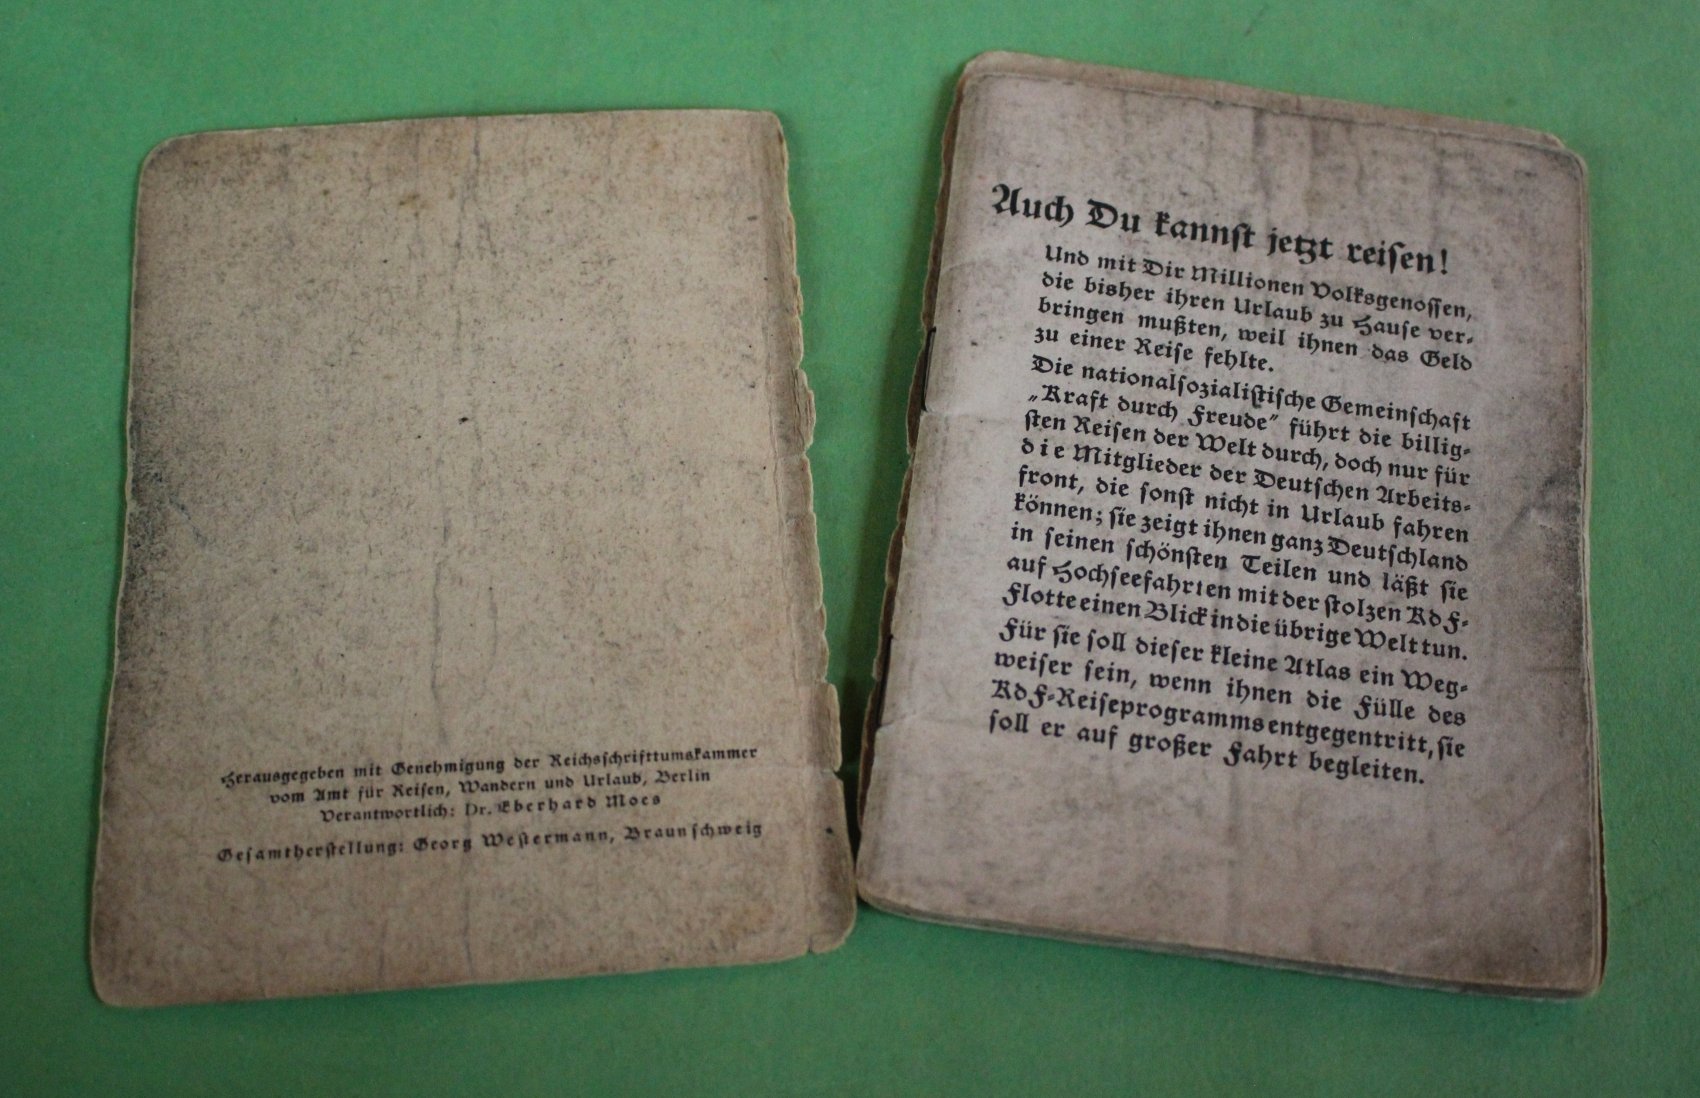 Herausgegeben mit Genehmigung der Reichsschrifttumskammer
vom Amt für Reisen, Wandern und Urlaub, Berlin
Verantwortlich: Dr. Eberhard Moes
Gesamtherstellung: Georg Westermann, Braunschweig
Auch Du kannst jetzt reisen!
Und mit Dir Millionen Volksgenossen,
die bisher ihren Urlaub zu Hause ver-
bringen mußten, weil ihnen das Geld
zu einer Reise fehlte.
Die nationalsozialistische Gemeinschaft
„Kraft durch Freude“ führt die billig-
sten Reisen der Welt durch, doch nur für
die Mitglieder der Deutschen Arbeits-
front, die sonst nicht in Urlaub fahren
können; sie zeigt ihnen ganz Deutschland
in seinen schönsten Teilen und läßt sie
auf Hochseefahrten mit der stolzen KdF-
Flotte einen Blick in die übrige Welt tun.
Für sie soll dieser kleine Atlas ein Weg-
weiser sein, wenn ihnen die Fülle des
KdF-Reiseprogramms entgegentritt, sie
soll er auf großer Fahrt begleiten.